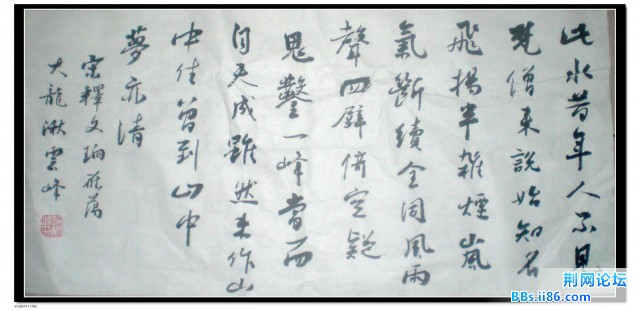 此水昔年人不見
梵僧来說始知名
飛揚半雜煙嵐
氣斷續全同風雨
聲四壁倚空疑
鬼鑿一峰當面
自天成雖然未作山
中住曾到山中
夢亦清
宋釋文珦雁蕩
大龍湫雲峰
荆网论坛
BBs.ii86.com